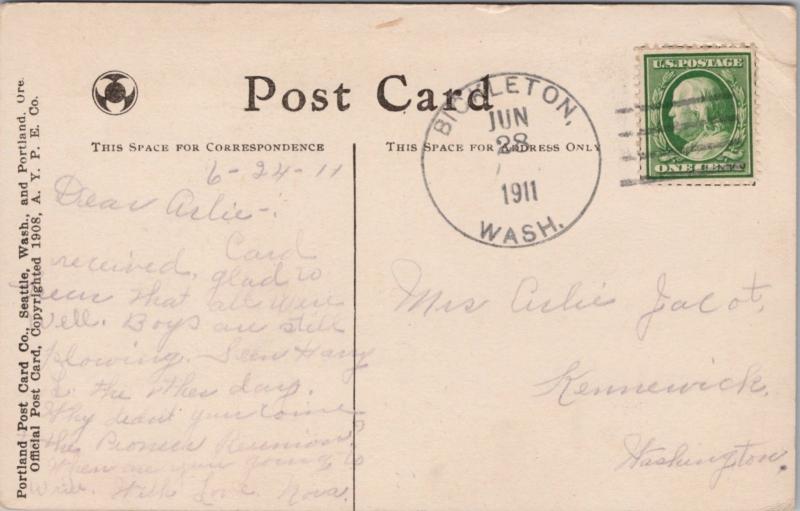 Post Card
THIS SPACE FOR CORRESPONDENCE
THIS SPACE FOR ADDRESS ONLY
Portland Post Card Co., Seattle, Wash., and Portland, Ore
Official Post Card, Copyrighted 1908, A. Y. P. E. Co.
BICKLETON,
JUN
28
1911
WASH.
U.S. POSTAGE
ONE CENT
6-24-11
Dear Arlie-.
Card
received, glad to
hear that all were
well. Boys are still
plowing. Seen Harry
the other day.
Why didn't you come
the Pioneer Reunion?
When are you going to
write. With Love. Nova.
Mrs Arlie Jacot,
Kennewick,
Washington.